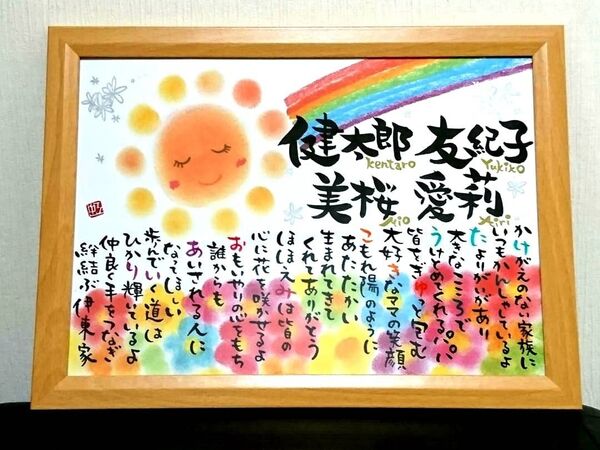 健太郎 友紀子
Kentaro Yukiko
美桜 愛莉
Mio Airi
かけがえのない家族に
いつもかんしゃしているよ
たよりがいがあり
大きなこころで
うけとめてくれるパパ
皆をぎゅっと包む
大好きなママの笑顔
こもれ陽のように
あたたかい
生まれてきて
くれてありがとう
ほほえみは皆の
心に花を咲かせるよ
おもいやりの心をもち
誰からも
あいされる人に
なってほしい
歩んでいく道は
ひかり輝いているよ
仲良く手をつなぎ
絆結ぶ伊東家